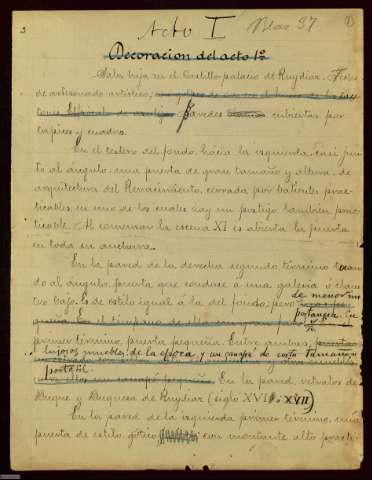 Acto I
1
Decoracion del acto 1º
Sala baja en el Castillo-palacio de Ruydiar.
de artesonado artístico;
Paredes cubiertas por
tapices y cuadros.
En el testero del fondo, hácia la izquierda, casi jun
to al ángulo, una puerta de gran tamaño y altura, de
arquitectura del Renacimiento, cerrada por batientes prac-
ticables, en uno de los cuales hay un postigo tambien prac-
ticable. Al comenzar la escena XI es abierta la puerta
en toda su anchura.
En la pared de la derecha segundo término tocan
do al ángulo, puerta que conduce á una galería ó claus
tro bajo. Es de estilo igual á la del fondo, pero de menor
En
primer término, puerta pequeña. Entre ambas,
lujosos muebles de la época, y un
portátil
En la pared, retratos de
Duque y Duquesa de Ruydiar (siglo XVI XVII)
En la pared de la izquierda primer término, una
puerta de estilo gótico, con montante alto practi-